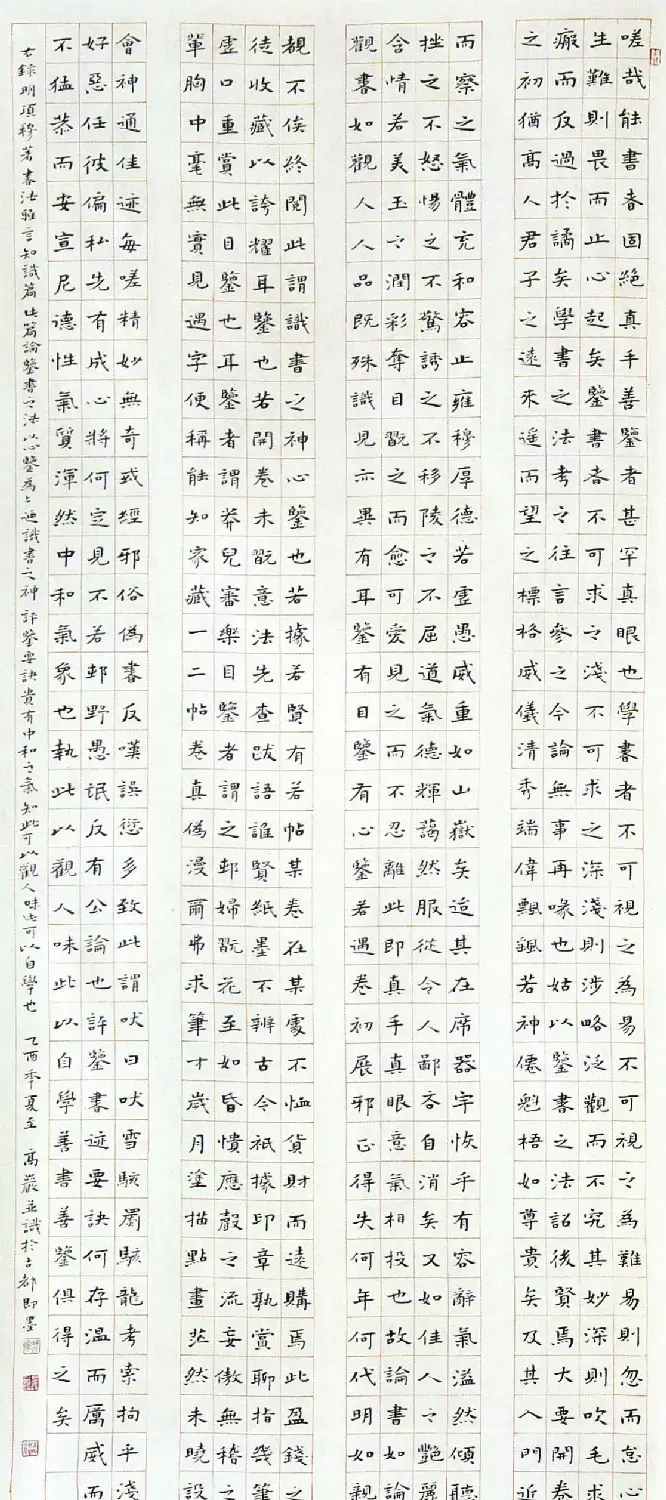 嗟哉能書者固絕真手善鑒者甚罕真眼也學書者不可視之為易不可視之為難易則忽而怠心
生難則畏而止心起矣鑒書者不可求之淺不可求之深淺則涉略泛觀而不究其妙深則吹毛求
瘢而反過於譎矣學書之法考之往言參之今論無事再喙也姑以鑒書之法詔後賢焉大要開卷
之初猶高人君子之遠來遙而望之標格威儀清秀端偉飄颻若神僊魁梧如尊貴矣及其入門近
而察之氣體充和容止雍穆厚德若虛愚威重如山嶽矣迨其在席器宇恢乎有容辭氣溢然傾聽
挫之不怒惕之不驚誘之不移陵之不屈道氣德輝藹然服從令人鄙吝自消矣又如佳人之艷麗
含情若美玉之潤彩奪目翫之而愈可愛見之而不忍離此即真手真眼意氣相投也故論書如論
觀書如觀人人品既殊識見亦異有耳鑒有目鑒有心鑒若遇卷初展邪正得失何年何代明如親
覩不俟終閱此謂識書之神心鑒也若據若賢有若帖某卷在某處不恤貨財而遠購焉此盈錢之
徒收藏以誇耀耳鑒也若開卷未翫意法先查跋語誰賢紙墨不辨古今秖據印章孰賞聊指幾筆
虛口重賞此目鑒也耳鑒者謂莽兒審樂目鑒者謂之邨婦翫花至如昏憒應聲之流妄傲無稽之
輩胸中毫無實見遇字便稱能知家藏一二帖卷真偽漫爾弗求筆才歲月塗描點畫茫然未曉設
會神通佳迹每嗟精妙無奇或經邪俗偽書反嘆誤愆多致此謂吠日吠雪駭罽駭龍考索拘乎淺
好惡任彼偏私先有成心將何定見不若邨野愚氓反有公論也評鑒書迹要訣何存溫而厲威而
不猛恭而安宣尼德性氣質渾然中和氣象也執此以觀人味此以自學善書善鑒俱得之矣
右錄明項穆著書法雅言知識篇此篇論鑒書之法以心鑒為上迺識書之神評鑒要訣貴有中和之氣知此可以觀人味此可以自學也 乙酉年夏至 高巖並識於古都即墨